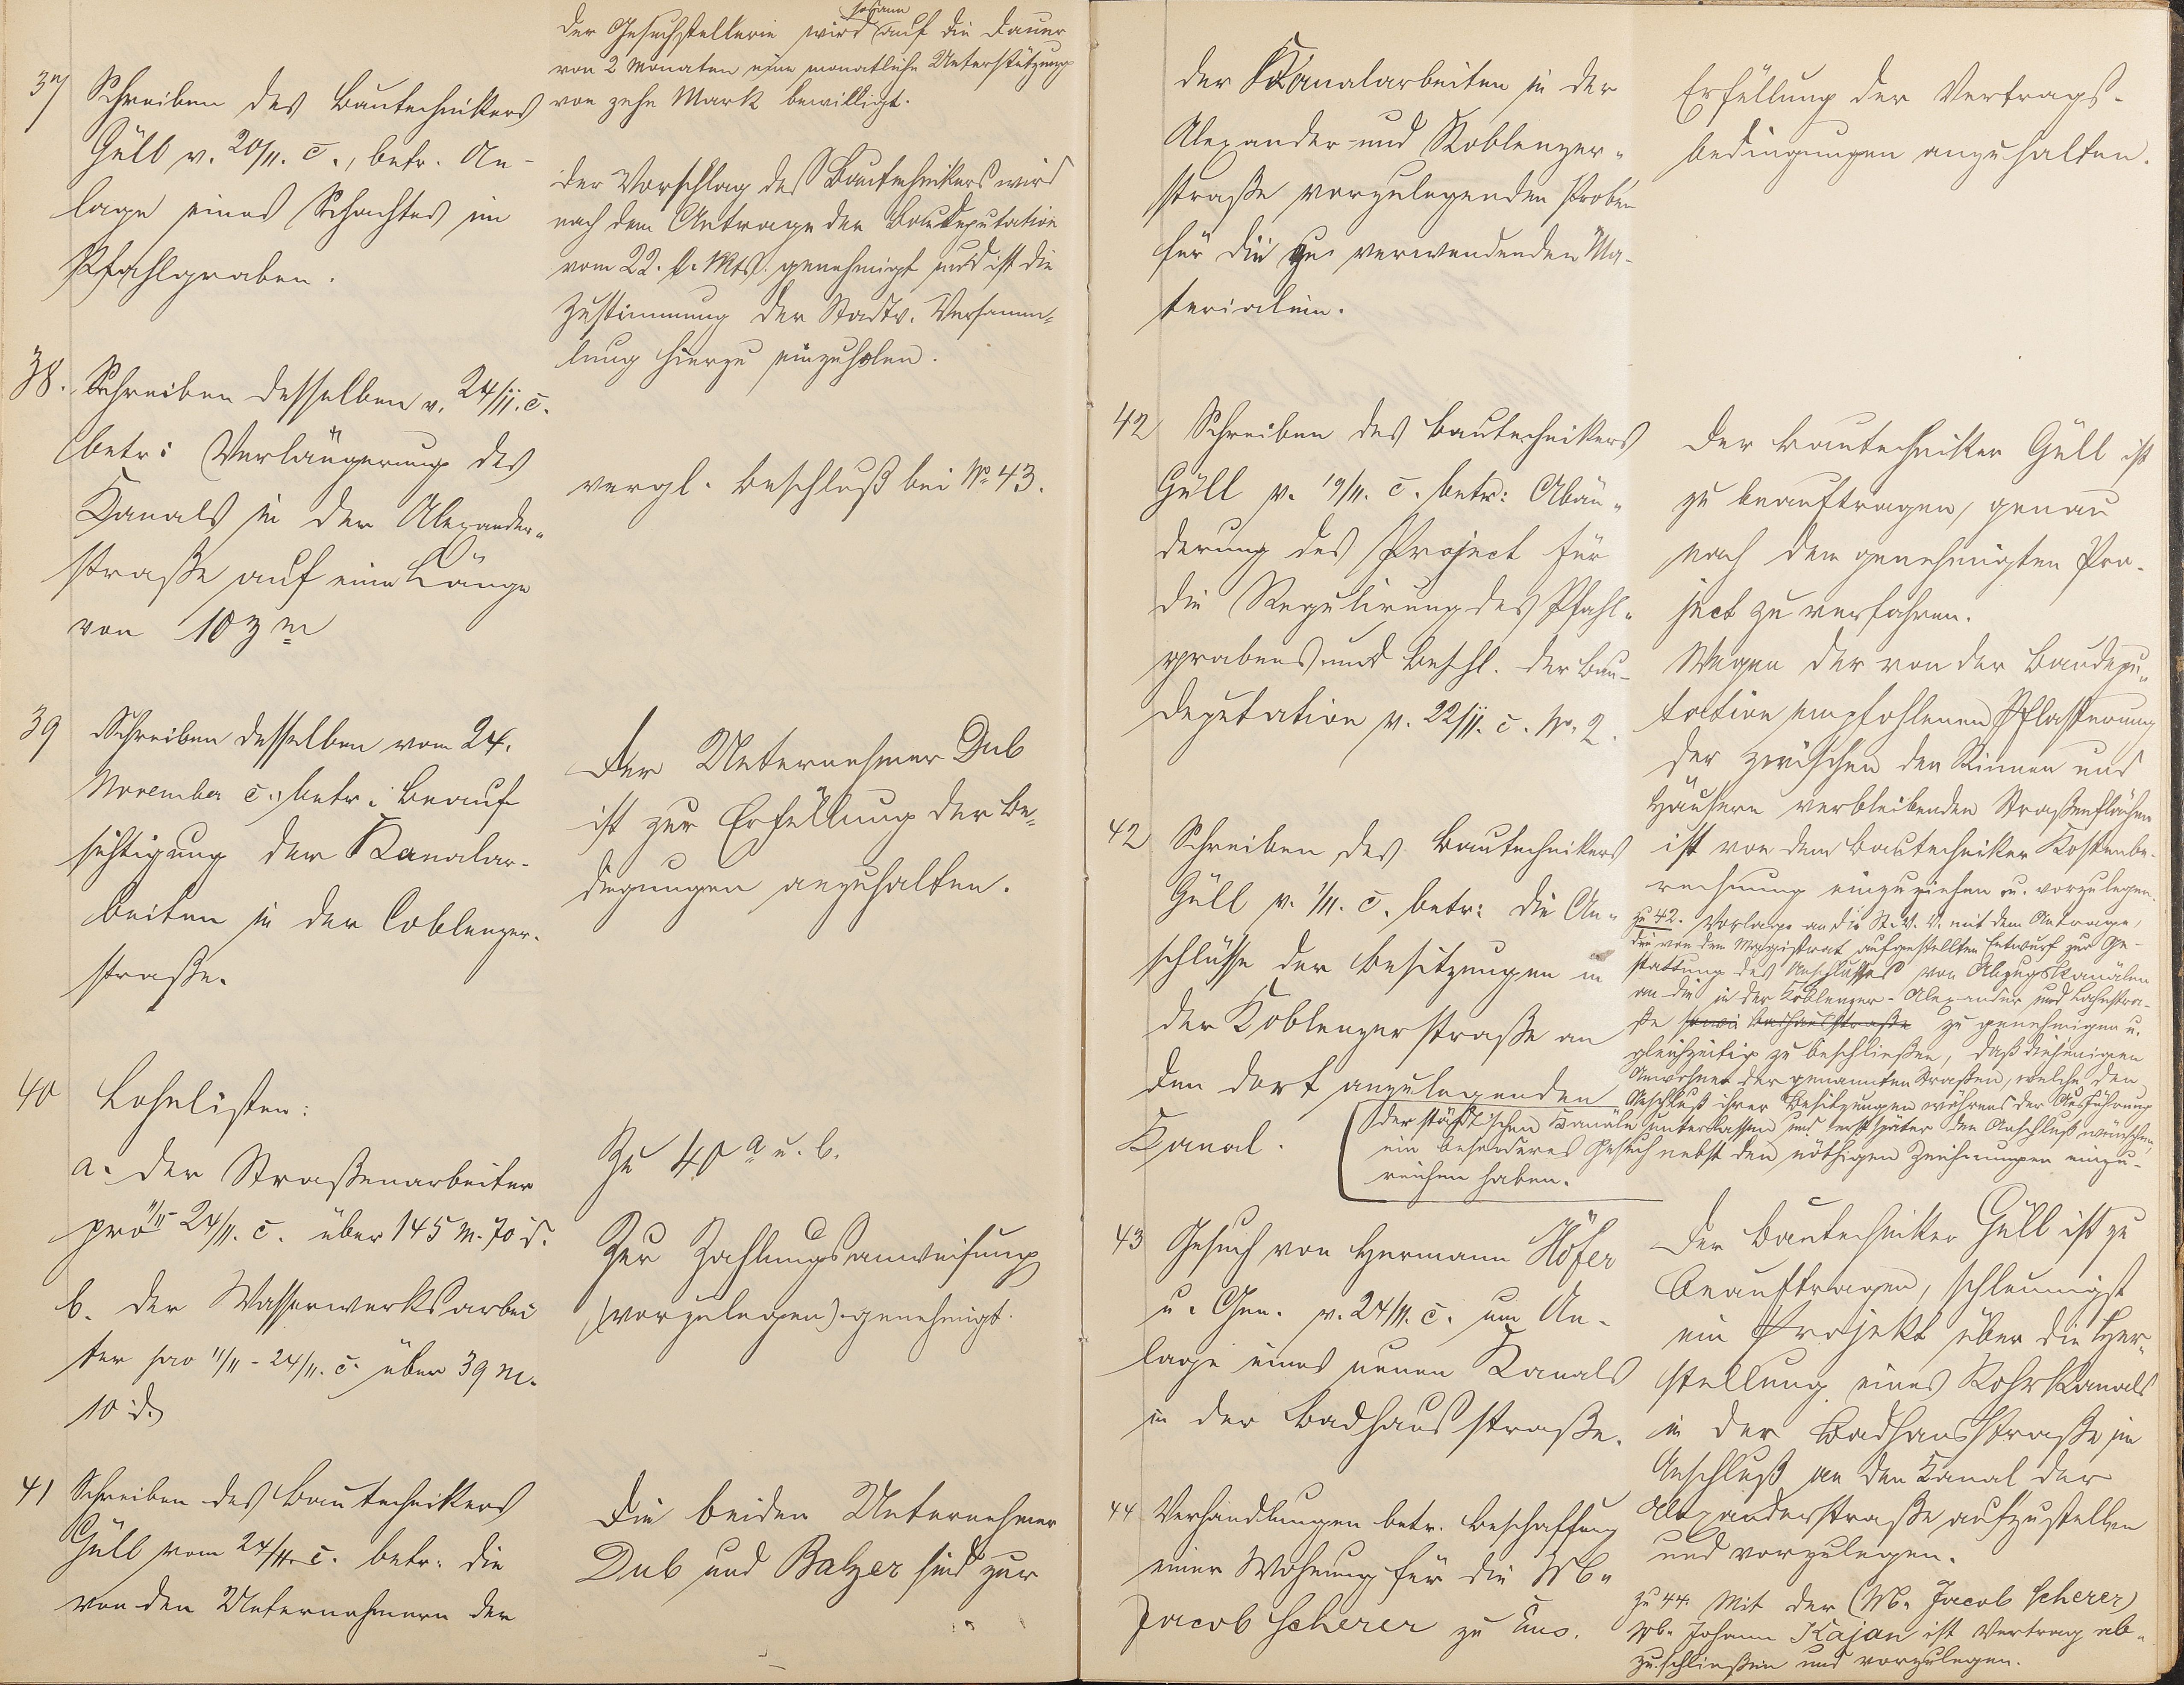 der Gesuchstellerin wird sodann auf die Dauer
von 2 Monaten eine monatliche Unterstützung
von zehn Mark bewilligt.
37 Schreiben des Bautechnikers
Güll v. 20/11. c., betr. An-
lage eines Schachtes im
Pfahlgraben.
Der Vorschlag des Bautechnikers wird
nach dem Antrage der Baudeputation
vom 22. d. Mts. genehmigt und ist die
Zustimmung der Stadtv. Versamm-
lung hierzu einzuholen.
38. Schreiben desselben v. 24/11. c.
betr: Verlängerung des
Kanals in der Alexander-
straße auf eine Länge
von 103 m
vergl. Beschluß bei No 43.
39 Schreiben desselben vom 24.
November c., betr: Beauf-
sichtigung der Kanalar-
beiten in der Coblenzer-
straße.
Der Unternehmer Dub
ist zur Erfüllung der Be-
dingungen anzuhalten.
40 Lohnlisten:
a. der Straßenarbeiter
pro 11/11 - 24/11. c. über 145 M. 70 d.
b. der Wasserwerksarbei
ter pro 11/11 - 24/11. c. über 39 M.
10 d.
Zu 40 a u. b.
Zur Zahlungsanweisung
(vorzulegen) genehmigt.
41 Schreiben des Bautechnikers
Güll vom 24/11. c. betr. die
von den Unternehmern der
Die beiden Unternehmer
Dub und Balzer sind zur
der Kanalarbeiten in der
Alexander- und Koblenzer-
straße vorzulegenden Proben
für die zu verwendenden Ma-
terialien.
Erfüllung der Vertrags-
bedingungen anzuhalten.
42 Schreiben des Bautechnikers
Güll v. 19/11. c. betr: Abän-
derung des Project für
die Regulirung des Pfahl-
grabens und Beschl. der Bau-
deputation v. 22/11. c. No. 2.
Der Bautechniker Güll ist
zu beauftragen, genau
nach dem genehmigten Pro-
ject zu verfahren.
Wegen der von der Baudepu-
tation empfohlenen Pflasterung
der zwischen den Rinnen und
Häusern verbleibenden Straßenflächen
ist von dem Bautechniker Kostenbe-
rechnung einzuziehen u. vorzulegen.
42 Schreiben des Bautechnikers
Güll v. 1/11. c. betr: die An-
schlüsse der Besitzungen in
der Koblenzerstraße an
den dort anzulegenden
Kanal.
zu 42. Vorlage an die St. V. V. mit dem Antrage,
den von dem Magistrat aufgestellten Entwurf zur Ge-
stattung des Anschlusses von Abzugskanälen
an die in der Koblenzer- Alexander und Lahnstra-
ße sowie Badhausstraße zu genehmigen u.
gleichzeitig zu beschließen, daß diejenigen
Anwohner der genannten Straßen, welche den
Anschluß ihrer Besitzungen während der Ausführung
der städtischen Kanäle unterlassen und erst später den Anschluß wünschen,
ein besonderes Gesuch nebst den nöthigen Zeichnungen einzu-
reichen haben.
43 Gesuch von Hermann Höfer
u. Gen. v. 24/11. c. um An-
lage eines neuen Kanals
in der Badhausstraße.
Der Bautechniker Güll ist zu
beauftragen, schleunigst
ein Projekt über die Her-
stellung eines Rohrkanals
in der Badhausstraße im
Anschluß an den Kanal der
Alexanderstraße aufzustellen
und vorzulegen.
44 Verhandlungen betr. Beschaffung
einer Wohnung für die Wb.
Jacob Scherer zu Ems.
zu 44. Mit der (Wb. Jacob Scherer)
Wb. Johann Kajan ist Vertrag ab-
zuschließen und vorzulegen.